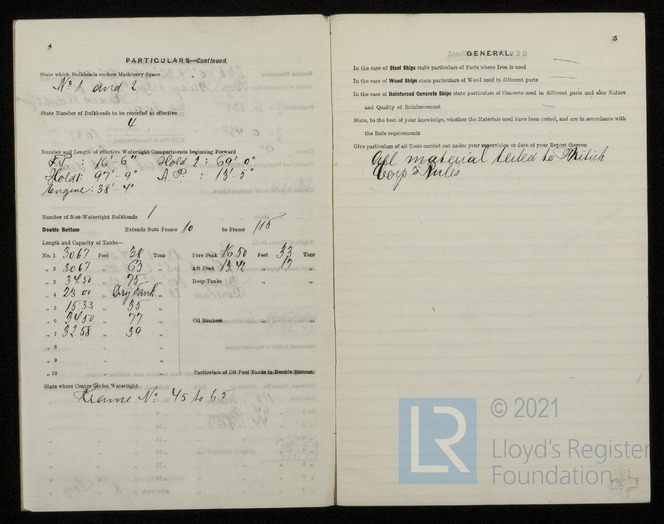 4
PARTICULARS—Continued.
State which Bulkheads enclose Machinery Space
No 1 and 2
State Number of Bulkheads to be recorded as effective
4
Number and Length of effective Watertight Compartments beginning Forward
F.P. : 16'-6" Hold 2 : 69'-0"
Hold 1 : 97'-9" A.P. : 13'-5"
Engine : 38'-4"
Number of Non-Watertight Bulkheads 1
Double Bottom Extends from Frame 10 to Frame 115
Length and Capacity of Tanks—
No. 1 30.67 Feet 38 Tons Fore Peak 16.50 Feet 33 Tons
„ 2 30.67 „ 63 „ Aft Peak 13.42 „ 17 „
„ 3 34.50 „ 75 „ Deep Tanks „ „
„ 4 23.00 „ Dry Tank „
„ 5 15.33 „ 35 „
„ 6 34.50 „ 77 „ Oil Bunkers „ „
„ 7 32.58 „ 39 „
„ 8 „ „
„ 9 „ „
„ 10 „ „ Particulars of Oil Fuel Tanks in Double Bottom
State where Centre Girder Watertight
Frame No 45 to 65
5
GENERAL.
In the case of Steel Ships state particulars of Parts where Iron is used
In the case of Wood Ships state particulars of Wood used in different parts
In the case of Reinforced Concrete Ships state particulars of Concrete used in different parts and also Nature
and Quality of Reinforcement
State, to the best of your knowledge, whether the Materials used have been tested, and are in accordance with
the Rule requirements
Give particulars of all Tests carried out under your supervision or date of your Report thereon
All material tested to British
Corp's Rules
LR
© 2021
Lloyd's Register
Foundation